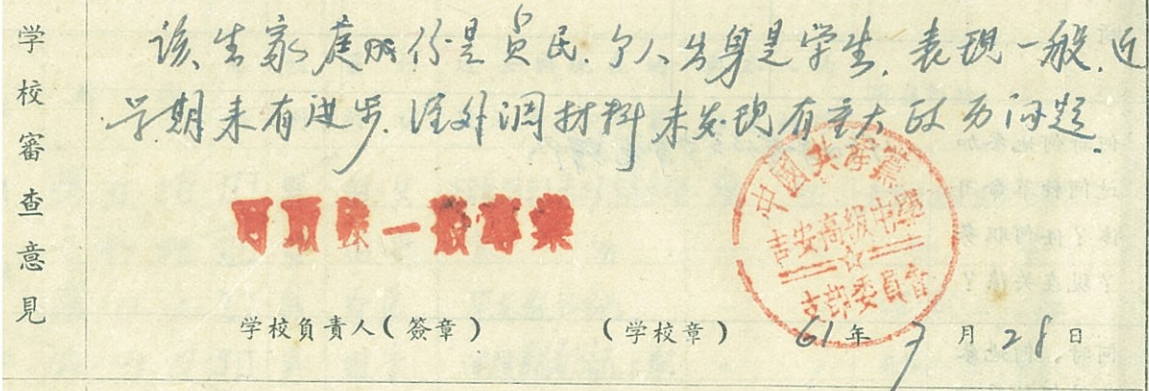 学校審查意見
该生家庭成份是贫民、个人出身是学生,表现一般,近
学期来有进步,经外调材料未发现有重大政历问题.
可取录一般專業
中國共產黨
吉安高級中學
支部委員會
学校負責人(簽章) (学校章) 61年7月28日